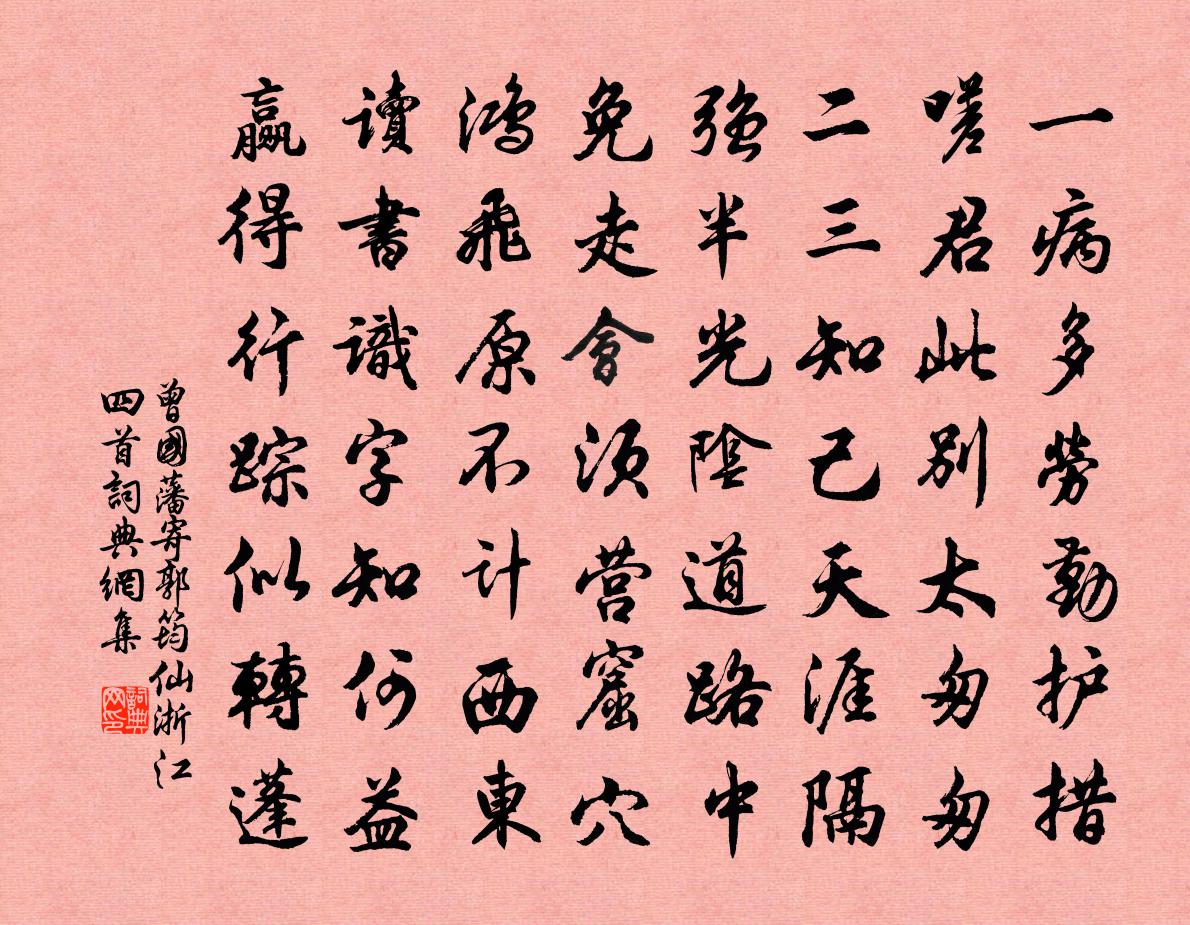 一病多劳勤护措
嗟君此别太匆匆
二三知己天涯隔
强半光陰道路中
兔走會须营窟穴
鸿飛原不计西東
讀書識字知何益
赢得行踪似轉蓬
曾國藩寄郭筠仙浙江
四首詞典網集
詞典
网印